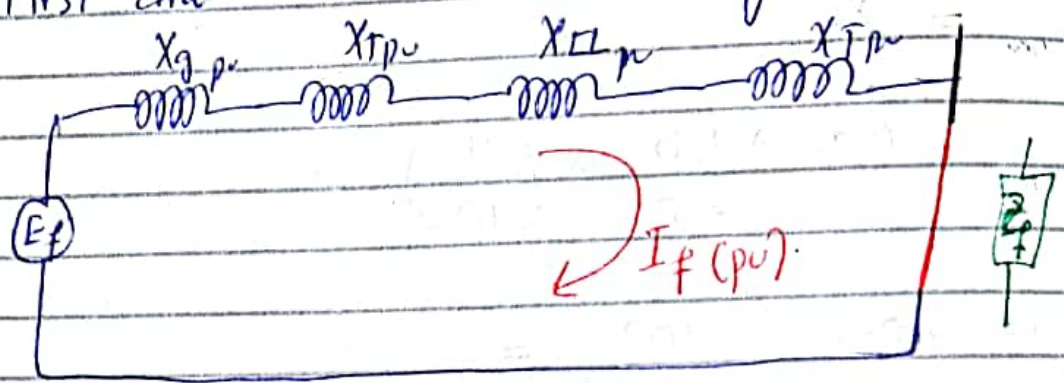 Xg pu XT pu X pu XT pu
Ef
If (pu).
Zf